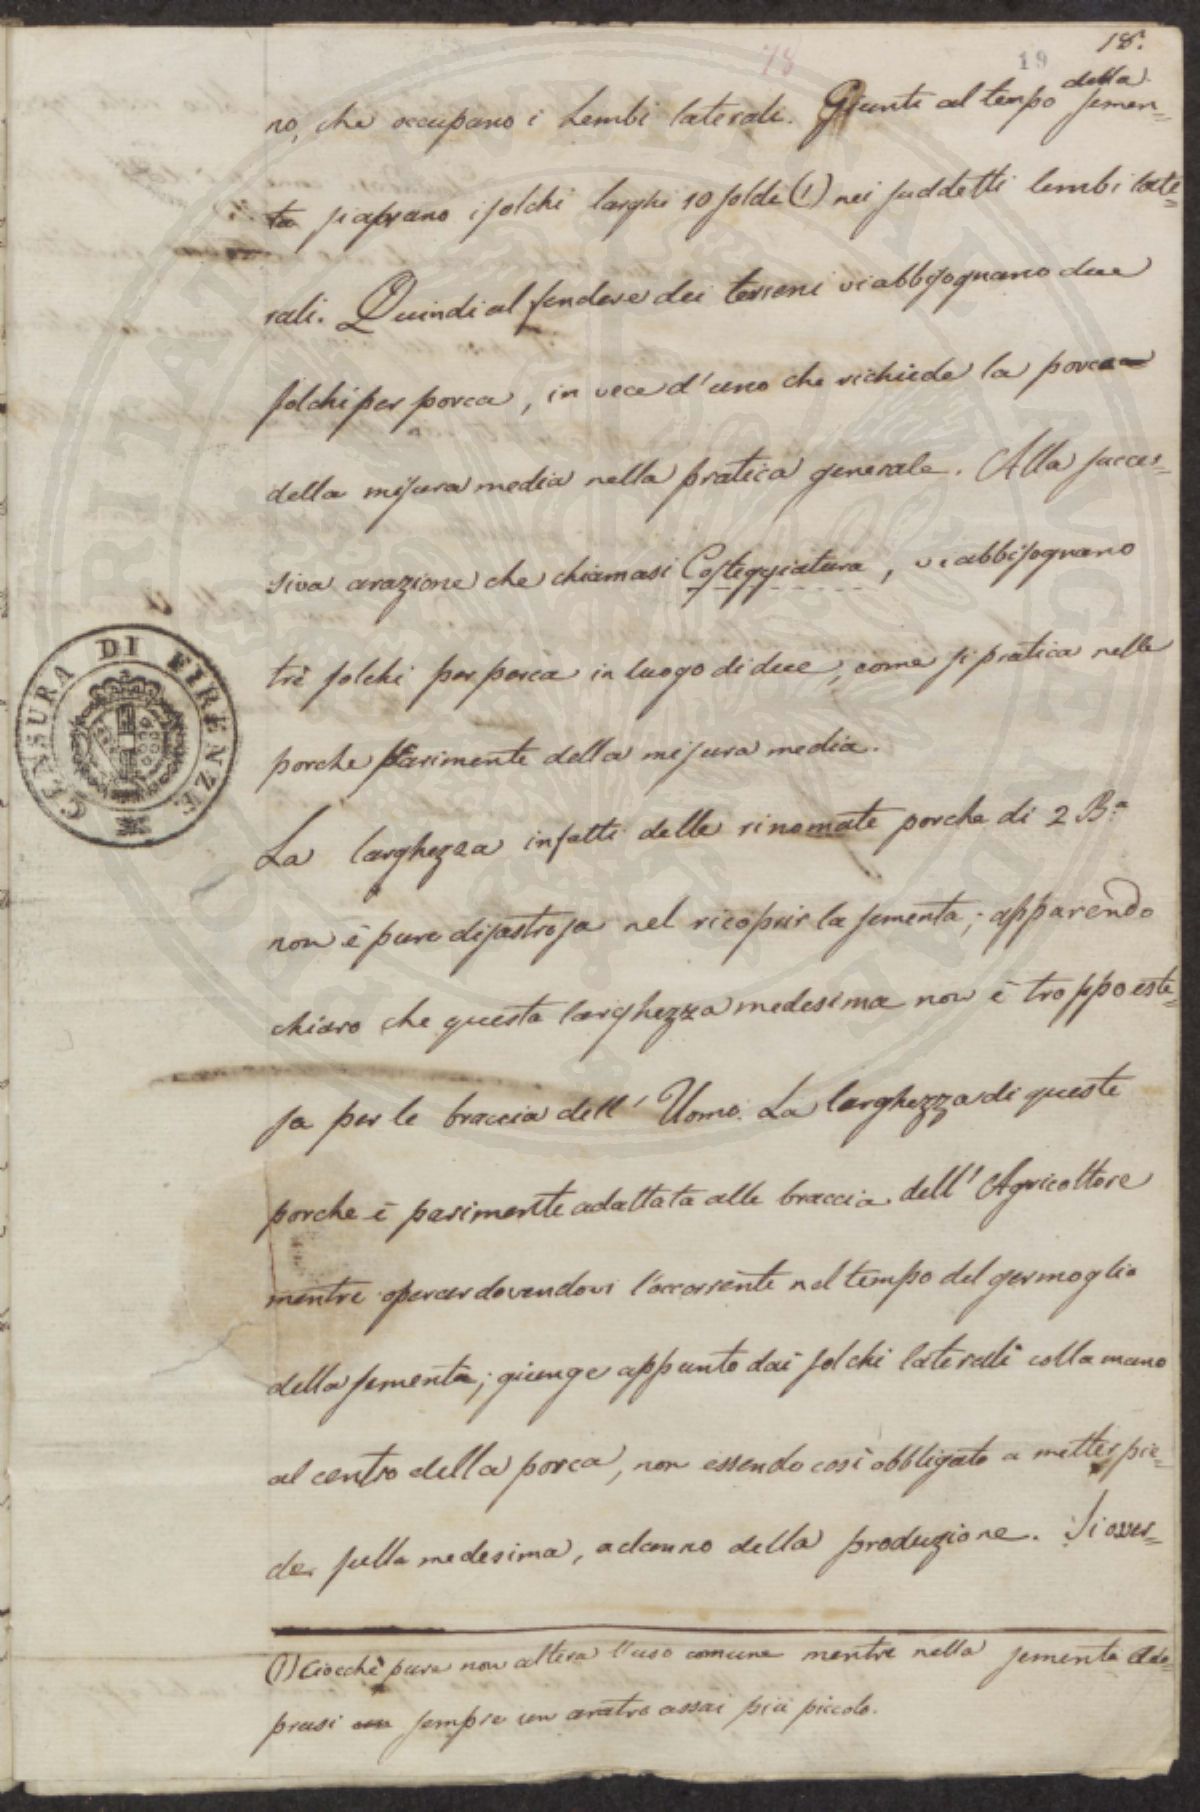 18.
19
78
no, che occupano i Lembi laterali. Giunti al tempo della semen=
ta si aprano i solchi larghi 10 soldi (1) nei suddetti lembi late=
rali. Quindi al fendere dei terreni vi abbisognano due
solchi per porca, in vece d'uno che richiede la porca
della misura media nella pratica generale. Alla succes=
siva arazione che chiamasi Costeggiatura, vi abbisognano
trè solchi per porca in luogo di due, come si pratica nelle
porche parimente della misura media.
La larghezza infatti delle rinomate porche di 2 B.a
non è pure disastrosa nel ricoprir la sementa; apparendo
chiaro che questa larghezza medesima non è troppo este=
sa per le braccia dell' Uomo. La larghezza di queste
porche è parimente adattata alle braccia dell' Agricoltore
mentre operar dovendovi l'occorrente nel tempo del germoglio
della sementa; giunge appunto dai solchi laterali colla mano
al centro della porca, non essendo così obbligato a metter pie=
de sulla medesima, a danno della produzione. Si osser=
(1) Ciocchè pure non altera l'uso comune mentre nella sementa ado=
prasi sempre un aratro assai più piccolo.
CENSURA DI FIRENZE